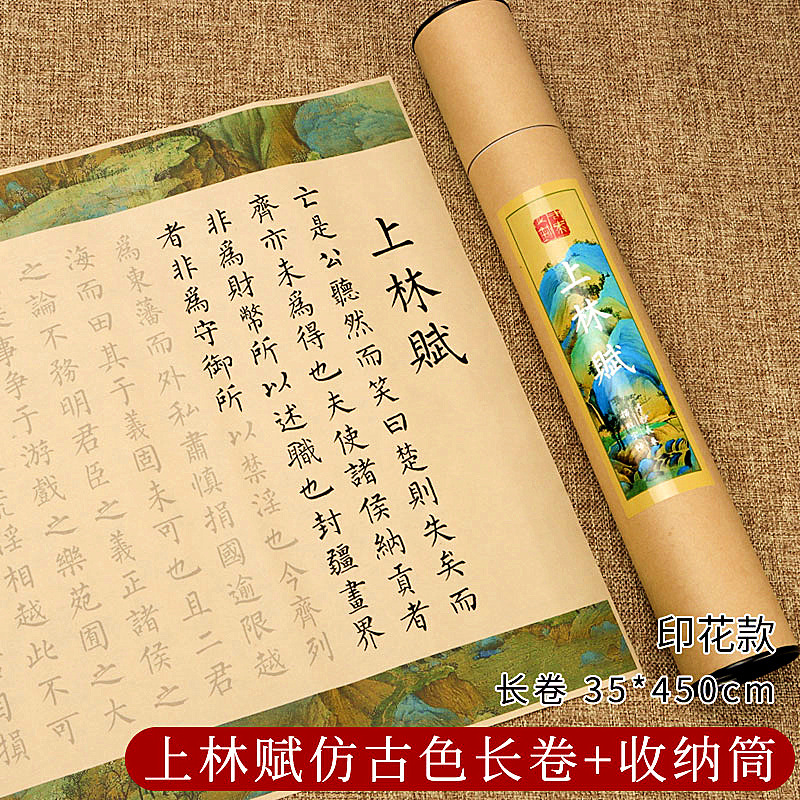 上林賦
亡是公聽然而笑曰楚則失矣而
齊亦未爲得也夫使諸侯納貢者
非爲財幣所以述職也封疆畫界
者非爲守御所以禁淫也今齊列
爲東藩而外私肅慎捐國逾限越
海而田其于義固未可也且二君
之論不務明君臣之義正諸侯之
事爭于游戲之樂苑囿之大
淫相越此不可
損
上林賦
印花款
长卷 35*450cm
上林赋仿古色长卷+收纳筒